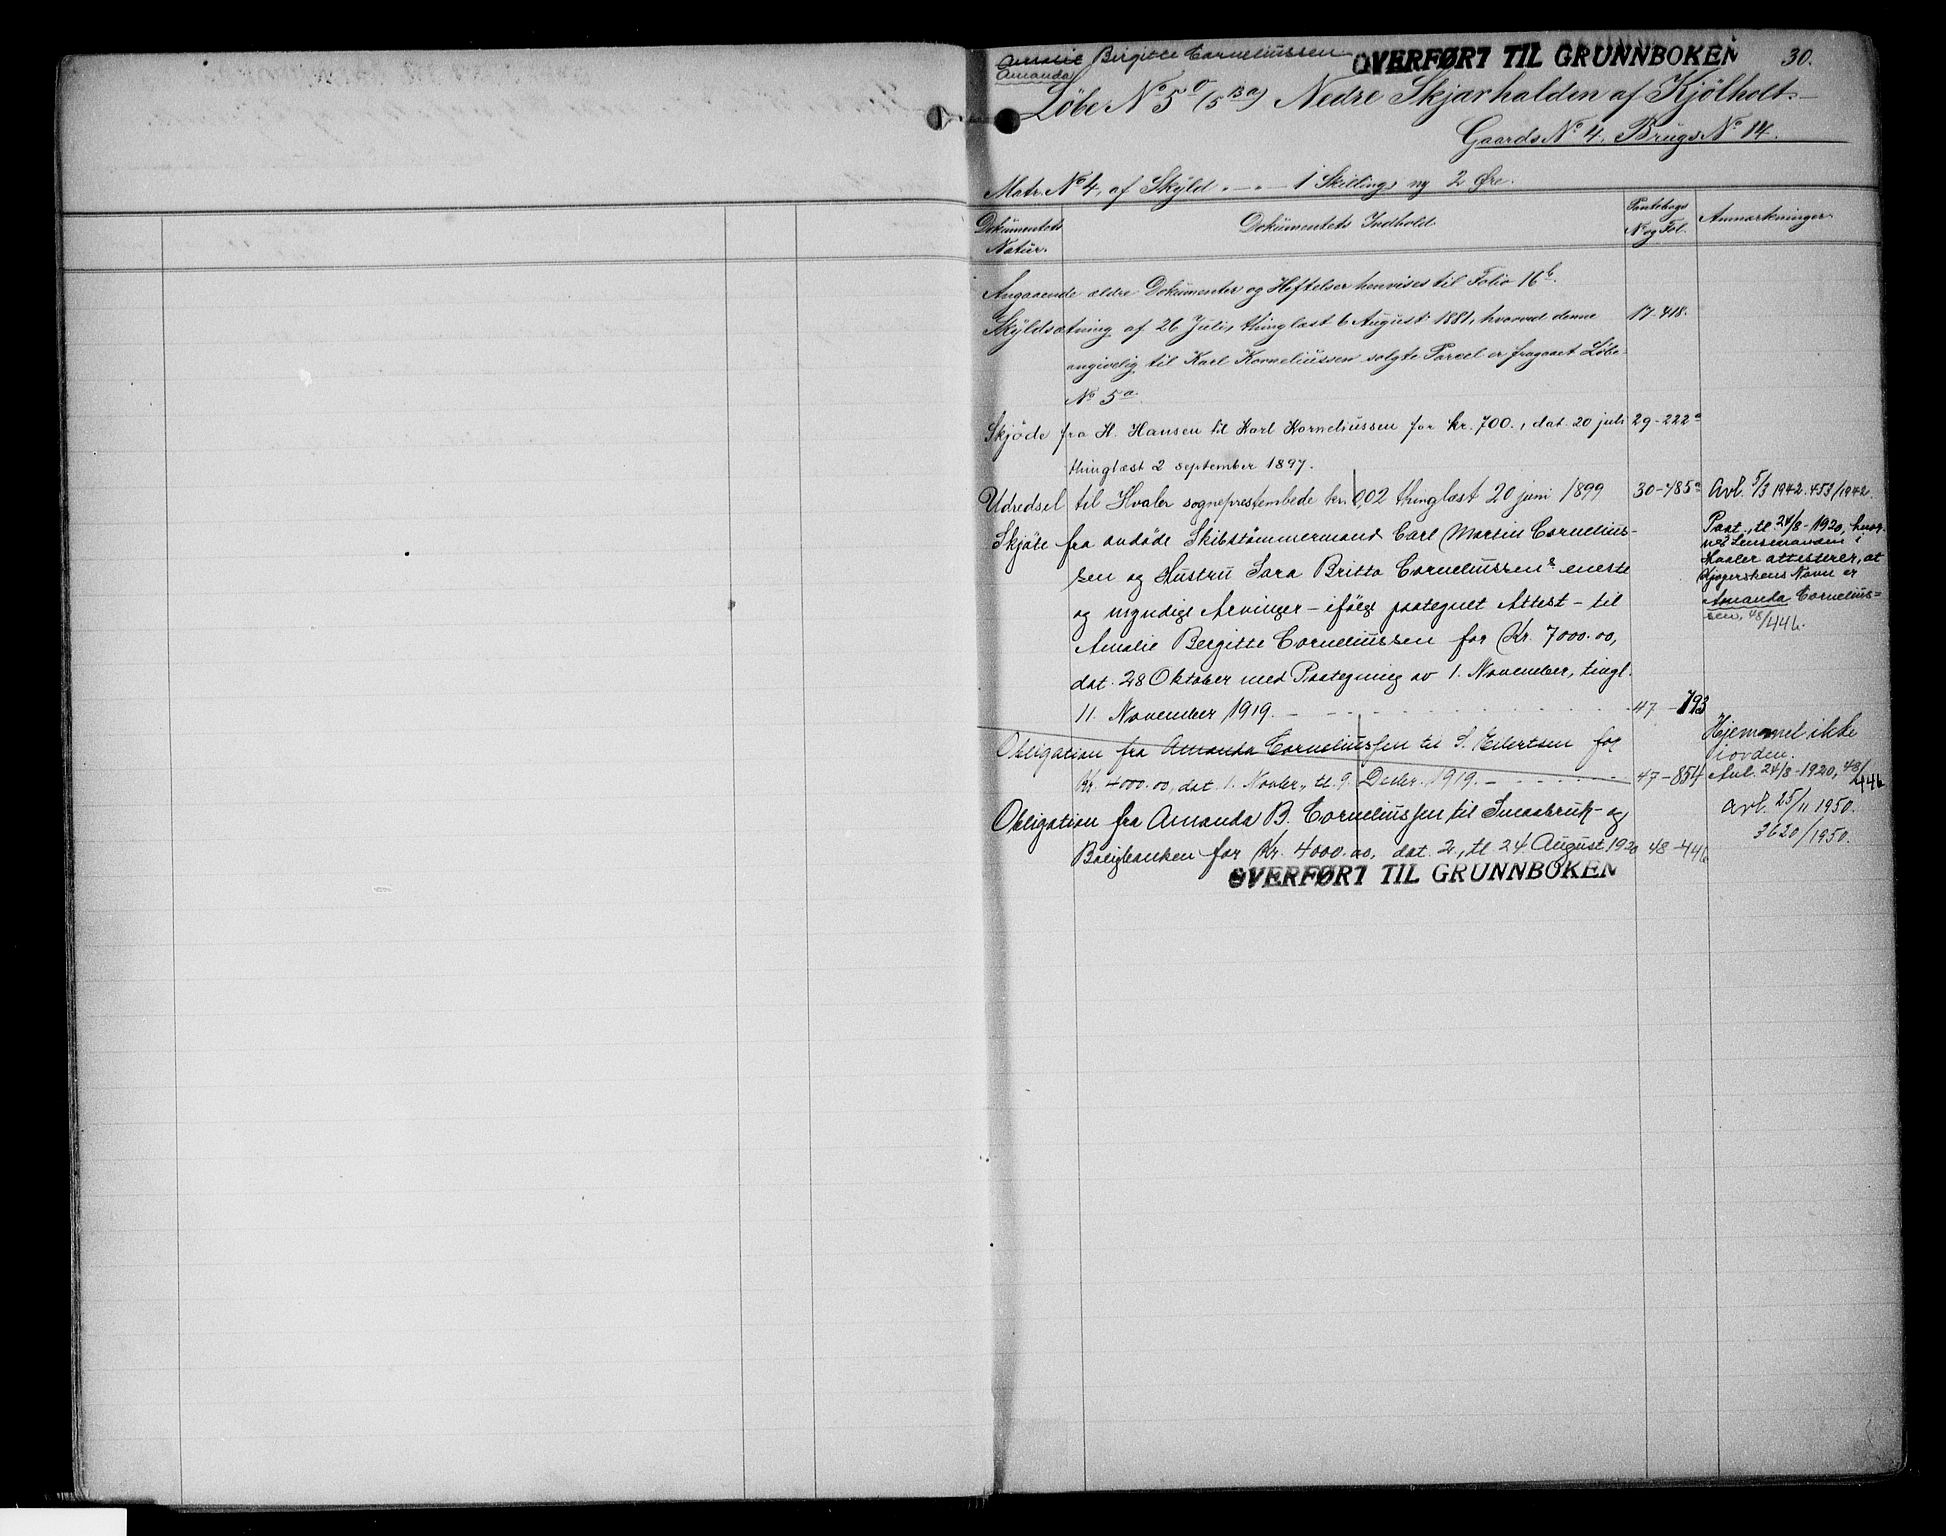 Amalie Birgitte Corneliussen OVERFØRT TIL GRUNNBOKEN 30.
Amanda
Löbe No 5 (5 Ba) Nedre Skjærhalden af Kjölholt
Gaards No 4. Brugs No 14.
Matr. No 4, af Skyld " - " - 1 Skilling, ny 2 Øre.
Dokumentets Natur. Dokumentets Indhold. Pantebogs No og Fol. Anmærkninger.
Angaaende ældre Dokumenter og Heftelser henvises til Folio 16b.
Skyldsætning af 26 Juli, thinglæst 6 August 1881, hvorved denne 17-418.
angivelig til Karl Korneliussen solgte Parcel er fragaaet Löbe-
No 5a.
Skjöde fra H. Hansen til Karl Korneliussen for kr. 700., dat. 20 juli 29-222a
thinglæst 2 september 1897.
Udredsel til Hvaler sogneprestembede kr. 0,02 thinglæst 20 juni 1899 30-485a Avl. 5/3 1942. 453/1942.
Skjöte fra avdöde Skibstömmermand Carl Martin Cornelius-
sen og Hustru Sara Britta Corneliussens eneste
og myndige Arvinger - ifölge paategnet Attest - til
Amalie Bergitte Corneliussen for Kr. 7000.00,
dat. 28 Oktober med Paategning av 1. November, tingl.
11. November 1919. 47-793
Paat., tl. 24/8-1920, hvor-
ved Lensmanden i
Hvaler attesterer, at
Kjöperskens Navn er
Amanda Cornelius=
sen, 48/446.
Obligation fra Amanda Corneliussen til S. Eilertsen for
Kr. 4000.00, dat. 1. Novbr., tl. 9. Decbr. 1919. 47-854
Hjemmel ikke
iorden.
Avl. 24/8-1920, 48/446
Obligation fra Amanda B. Corneliussen til Smaabruk- og
Boligbanken for Kr. 4000.00, dat. 2, tl. 24. August 1920 48-446
Avl. 25/11 1950.
3620/1950.
OVERFØRT TIL GRUNNBOKEN